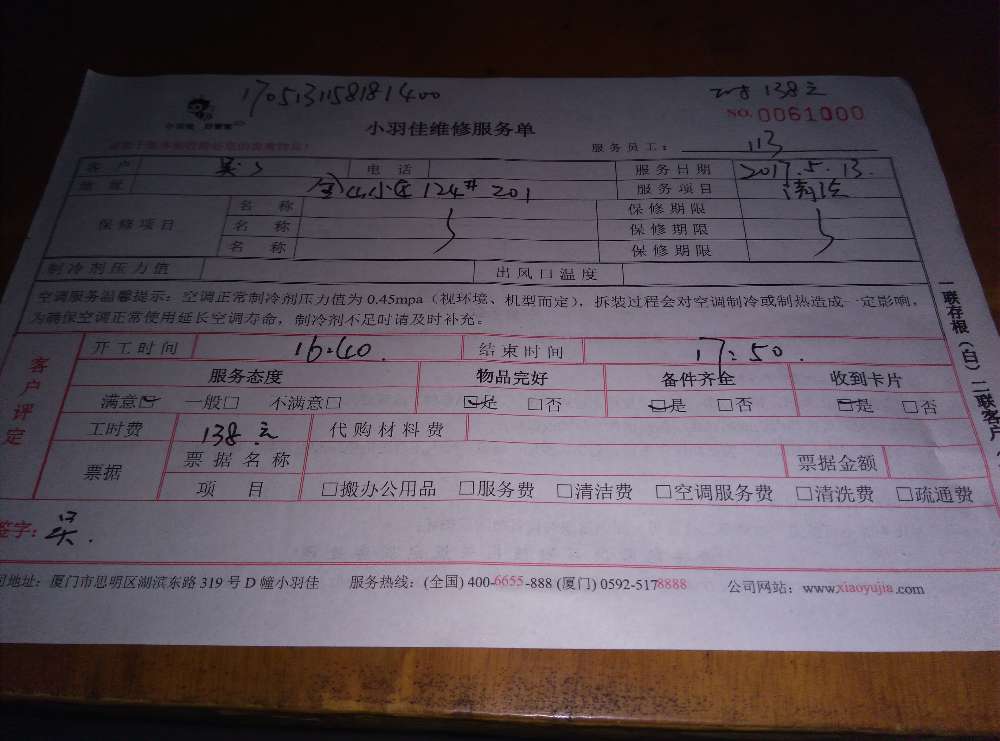 1705131158181400
138元
NO. 0061000
小羽佳维修服务单
服务员工： 113
客 户 吴 电 话 服务日期 2017.5.13.
地 址 金山小区124# 201 服务项目 清洗
保修项目 名 称 保修期限
名 称 保修期限
名 称 保修期限
制冷剂压力值 出风口温度
空调服务温馨提示：空调正常制冷剂压力值为 0.45mpa（视环境、机型而定），拆装过程会对空调制冷或制热造成一定影响，
为确保空调正常使用延长空调寿命，制冷剂不足时请及时补充。
客户评定
开工时间 16:40 结束时间 17:50.
服务态度 物品完好 备件齐全 收到卡片
满意☑ 一般□ 不满意□ ☑是 □否 ☑是 □否 ☑是 □否
工时费 138.元 代购材料费
票据 票据名称 票据金额
项 目 □搬办公用品 □服务费 □清洁费 □空调服务费 □清洗费 □疏通费
签字：吴.
司地址：厦门市思明区湖滨东路 319 号 D 幢小羽佳 服务热线：(全国) 400-6655-888 (厦门) 0592-5178888 公司网站：www.xiaoyujia.com
一联存根（白）二联客户